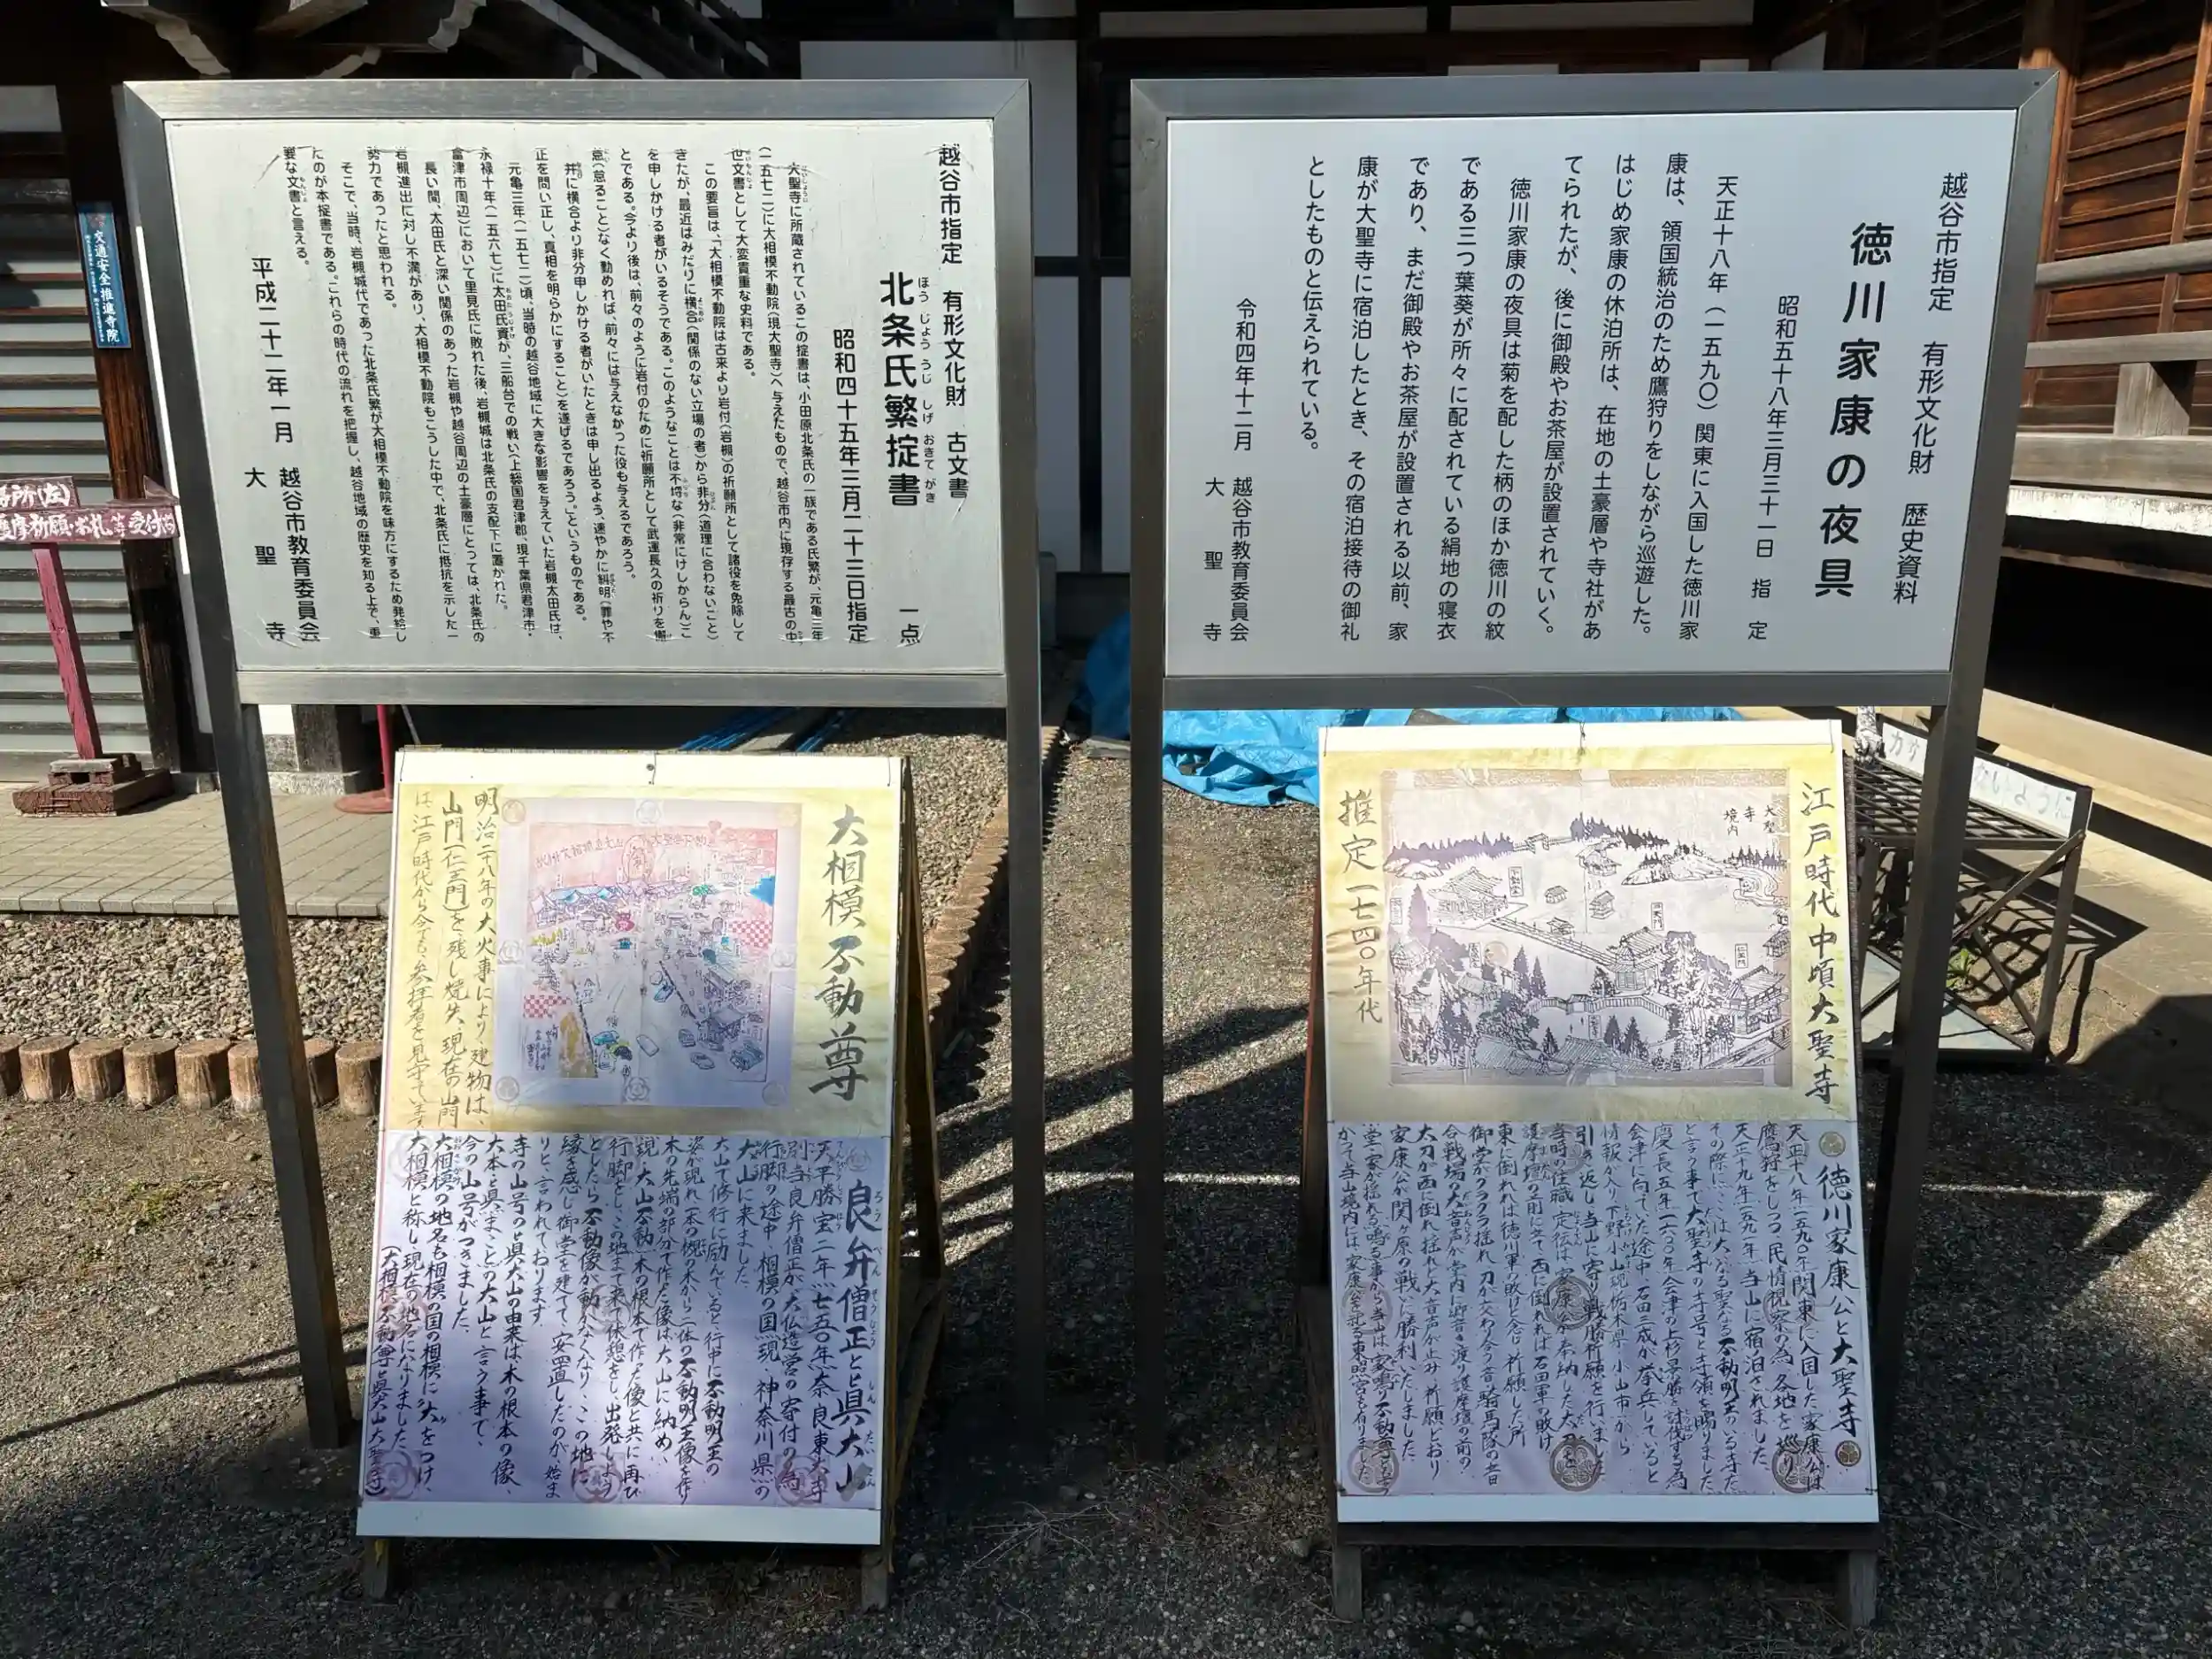 越谷市指定　有形文化財　歴史資料
徳川家康の夜具
昭和五十八年三月三十一日　指定
天正十八年（一五九〇）関東に入国した徳川家
康は、領国統治のため鷹狩りをしながら巡遊した。
はじめ家康の休泊所は、在地の土豪層や寺社があ
てられたが、後に御殿やお茶屋が設置されていく。
徳川家康の夜具は菊を配した柄のほか徳川の紋
である三つ葉葵が所々に配されている絹地の寝衣
であり、まだ御殿やお茶屋が設置される以前、家
康が大聖寺に宿泊したとき、その宿泊接待の御礼
としたものと伝えられている。
令和四年十二月　越谷市教育委員会
大聖寺
越谷市指定　有形文化財　古文書
北条氏繁掟書　一点
ほうじょううじしげおきてがき
昭和四十五年三月二十三日指定
大聖寺に所蔵されているこの掟書は、小田原北条氏の一族である氏繁が、元亀三年
（一五七二）に大相模不動院（現大聖寺）へ与えたもので、越谷市内に現存する最古の中
世文書として大変貴重な史料である。
この要旨は、「大相模不動院は古来より岩付（岩槻）の祈願所として諸役を免除して
きたが、最近はみだりに横合（関係のない立場の者）から非分（道理に合わないこと）
を申しかける者がいるそうである。このようなことは不埒な（非常にけしからん）こ
とである。今より後は、前々のように岩付のために祈願所として武運長久の祈りを懈
怠（怠ること）なく勤めれば、前々には与えなかった役も与えるであろう。
并に横合より非分申しかける者がいたときは申し出るよう、速やかに糾明（罪や不
正を問い正し、真相を明らかにすること）を遂げるであろう。」というものである。
元亀三年（一五七二）頃、当時の越谷地域に大きな影響を与えていた岩槻太田氏は、
永禄十年（一五六七）に太田氏資が、三船台での戦い（上総国君津郡、現千葉県君津市・
富津市周辺）において里見氏に敗れた後、岩槻城は北条氏の支配下に置かれた。
長い間、太田氏と深い関係のあった岩槻や越谷周辺の土豪層にとっては、北条氏の
岩槻進出に対し不満があり、大相模不動院もこうした中で、北条氏に抵抗を示した一
勢力であったと思われる。
そこで、当時、岩槻城代であった北条氏繁が大相模不動院を味方にするため発給し
たのが本掟書である。これらの時代の流れを把握し、越谷地域の歴史を知る上で、重
要な文書と言える。
平成二十二年一月　越谷市教育委員会
大聖寺
交通安全推進寺院
江戸時代中頃大聖寺
大聖寺境内
推定一七四〇年代
徳川家康公と大聖寺
天正十八年一五九〇年関東に入国した家康公は
鷹狩をしつつ、民情視察の為、各地を巡り
天正十九年一五九一年、当山に宿泊されました。
その際に、ここは大いなる聖なる不動明王のいる寺だ
と言う事で大聖寺の寺号と寺領を賜りました
慶長五年一六〇〇年会津の上杉景勝を討伐する為
会津に向っていた途中、石田三成が挙兵していると
情報が入り下野小山現栃木県小山市から
引き返し当山に寄り戦勝祈願を行いました
当時の住職、定伝は家康公が奉納した太刀を
護摩壇の前に立て西に倒れれば石田軍の敗け
東に倒れれば徳川軍の敗けと念じ祈願した所
御堂がグラグラ揺れ刀が交わり合う音、騎馬隊の音
合戦場の大音声が堂内に響き渡り護摩壇の前の
太刀が西に倒れ揺れと大音声が止み、祈願どおり
家康公が関ヶ原の戦いに勝利いたしました
かつて当山境内には、家康公を祀る東照宮も有りました
大相模不動尊
明治二十八年の大火事により、建物は、
山門（仁王門）を残し焼失、現在の山門
は、江戸時代から今でも、参拝者を見守っています
良弁僧正と眞大山
天平勝宝二年（七五〇年）奈良東大寺
別当良弁僧正が大仏造営の寄付の為
行脚の途中、相模の国（現、神奈川県）の
大山に来ました。
大山で修行に励んでいると、行中に不動明王の
姿が現れ一本の槻の木から二体の不動明王像を作り
木の先端の部分で作た像は大山に納め、
（現、大山不動）木の根本で作った像と共に再び
行脚をし、この地まで来て休憩をし、出発しよう
としたら不動像が動かなくなり、この地に
縁を感じ御堂を建てて、安置したのが、始ま
りと、言われております。
寺の山号の眞大山の由来は木の根本の像、
大本と眞まことの大山と言う事で、
今の山号がつきました。
大相模の地名も相模の国の相模に大をつけ、
大相模と称し現在の地名になりました、
（大相模不動尊と眞大山大聖寺）